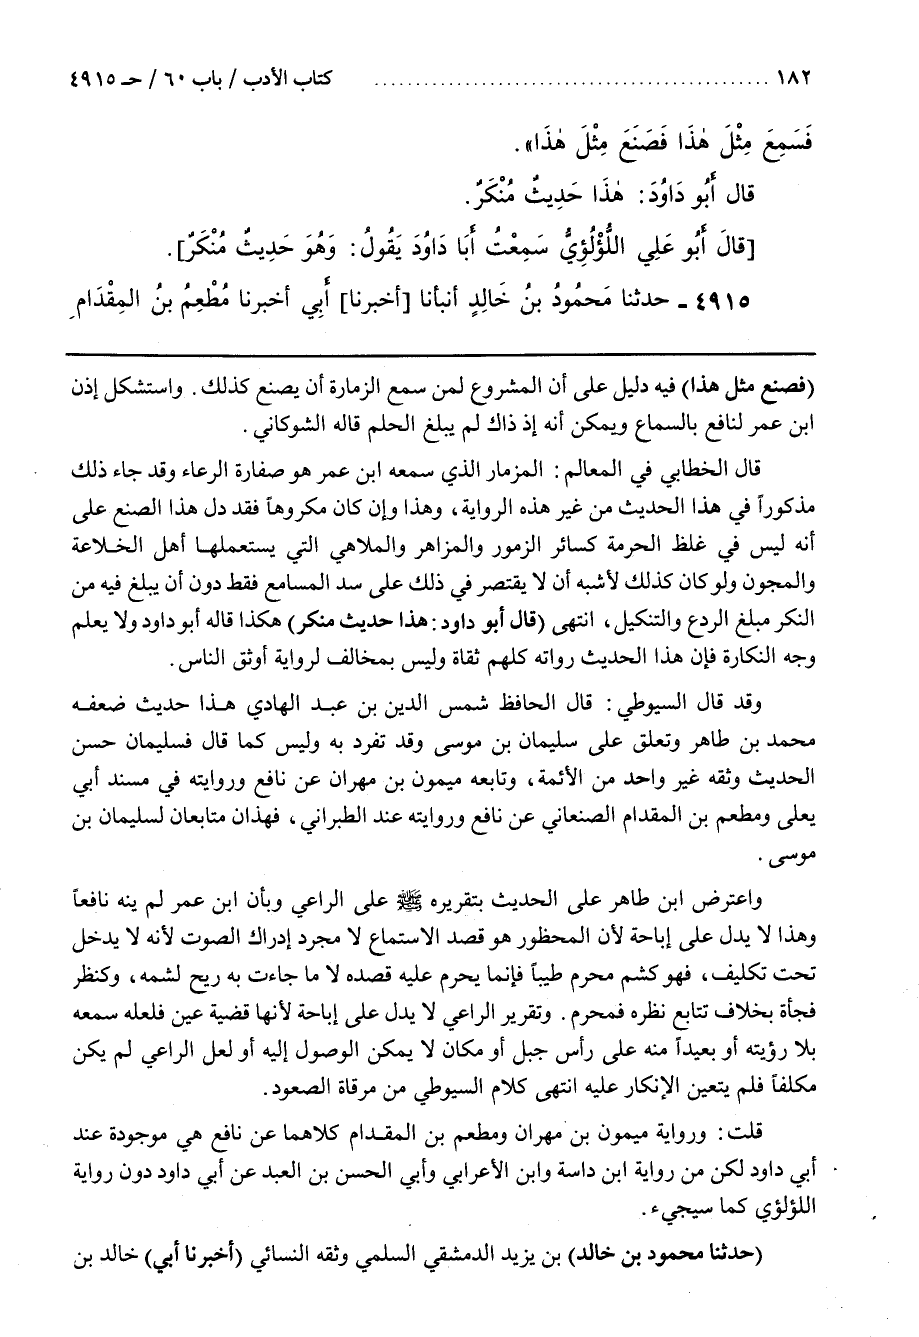 ١٨٢ ................................................ كتاب الأدب / باب ٦٠ / حـ ٤٩١٥
فَسَمِعَ مِثْلَ هٰذَا فَصَنَعَ مِثْلَ هٰذَا» .
قال أَبُو دَاوُدَ : هٰذَا حَدِيثٌ مُنْكَرٌ .
[قالَ أَبُو عَلِي اللُّؤْلُؤِيُّ سَمِعْتُ أَبَا دَاوُدَ يَقُولُ : وَهُوَ حَدِيثٌ مُنْكَرٌ] .
٤٩١٥ ـ حدثنا مَحمُودُ بنُ خَالِدٍ أنبأنا [أخبرنا] أَبِي أخبرنا مُطْعِمُ بنُ المِقْدَامِ
(فصنع مثل هذا) فيه دليل على أن المشروع لمن سمع الزمارة أن يصنع كذلك . واستشكل إذن
ابن عمر لنافع بالسماع ويمكن أنه إذ ذاك لم يبلغ الحلم قاله الشوكاني .
قال الخطابي في المعالم : المزمار الذي سمعه ابن عمر هو صفارة الرعاء وقد جاء ذلك
مذكوراً في هذا الحديث من غير هذه الرواية ، وهذا وإن كان مكروهاً فقد دل هذا الصنع على
أنه ليس في غلظ الحرمة كسائر الزمور والمزاهر والملاهي التي يستعملها أهل الخلاعة
والمجون ولو كان كذلك لأشبه أن لا يقتصر في ذلك على سد المسامع فقط دون أن يبلغ فيه من
النكر مبلغ الردع والتنكيل ، انتهى (قال أبو داود : هذا حديث منكر) هكذا قاله أبو داود ولا يعلم
وجه النكارة فإن هذا الحديث رواته كلهم ثقاة وليس بمخالف لرواية أوثق الناس .
وقد قال السيوطي : قال الحافظ شمس الدين بن عبد الهادي هذا حديث ضعفه
محمد بن طاهر وتعلق على سليمان بن موسى وقد تفرد به وليس كما قال فسليمان حسن
الحديث وثقه غير واحد من الأئمة ، وتابعه ميمون بن مهران عن نافع وروايته في مسند أبي
يعلى ومطعم بن المقدام الصنعاني عن نافع وروايته عند الطبراني ، فهذان متابعان لسليمان بن
موسى .
واعترض ابن طاهر على الحديث بتقريره ﷺ على الراعي وبأن ابن عمر لم ينه نافعاً
وهذا لا يدل على إباحة لأن المحظور هو قصد الاستماع لا مجرد إدراك الصوت لأنه لا يدخل
تحت تكليف ، فهو كشم محرم طيباً فإنما يحرم عليه قصده لا ما جاءت به ريح لشمه ، وكنظر
فجأة بخلاف تتابع نظره فمحرم . وتقرير الراعي لا يدل على إباحة لأنها قضية عين فلعله سمعه
بلا رؤيته أو بعيداً منه على رأس جبل أو مكان لا يمكن الوصول إليه أو لعل الراعي لم يكن
مكلفاً فلم يتعين الإنكار عليه انتهى كلام السيوطي من مرقاة الصعود .
قلت : ورواية ميمون بن مهران ومطعم بن المقدام كلاهما عن نافع هي موجودة عند
أبي داود لكن من رواية ابن داسة وابن الأعرابي وأبي الحسن بن العبد عن أبي داود دون رواية
اللؤلؤي كما سيجيء .
(حدثنا محمود بن خالد) بن يزيد الدمشقي السلمي وثقه النسائي (أخبرنا أبي) خالد بن